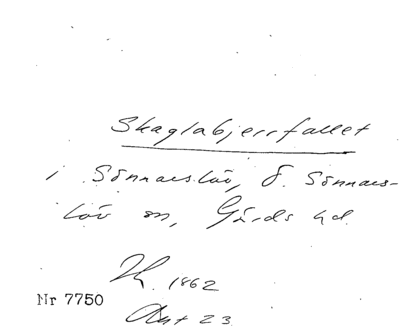 Skaglabjerrfallet
i Sönnarslöv, Ö. Sönnars-
löv sn, Gärds hd.
1862
Nr 7750
Akt 23